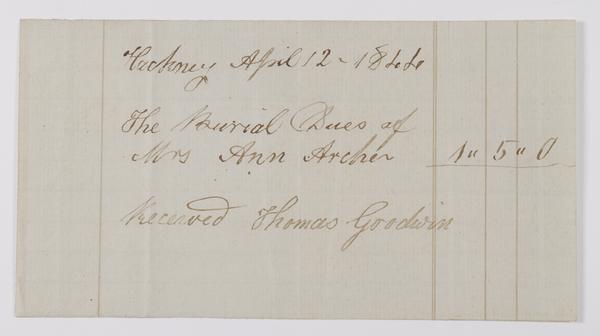 Hackney April 12 ~ 1844
The Burial Dues of
Mrs Ann Archer 1 " 5 " 0
Received Thomas Goodwin